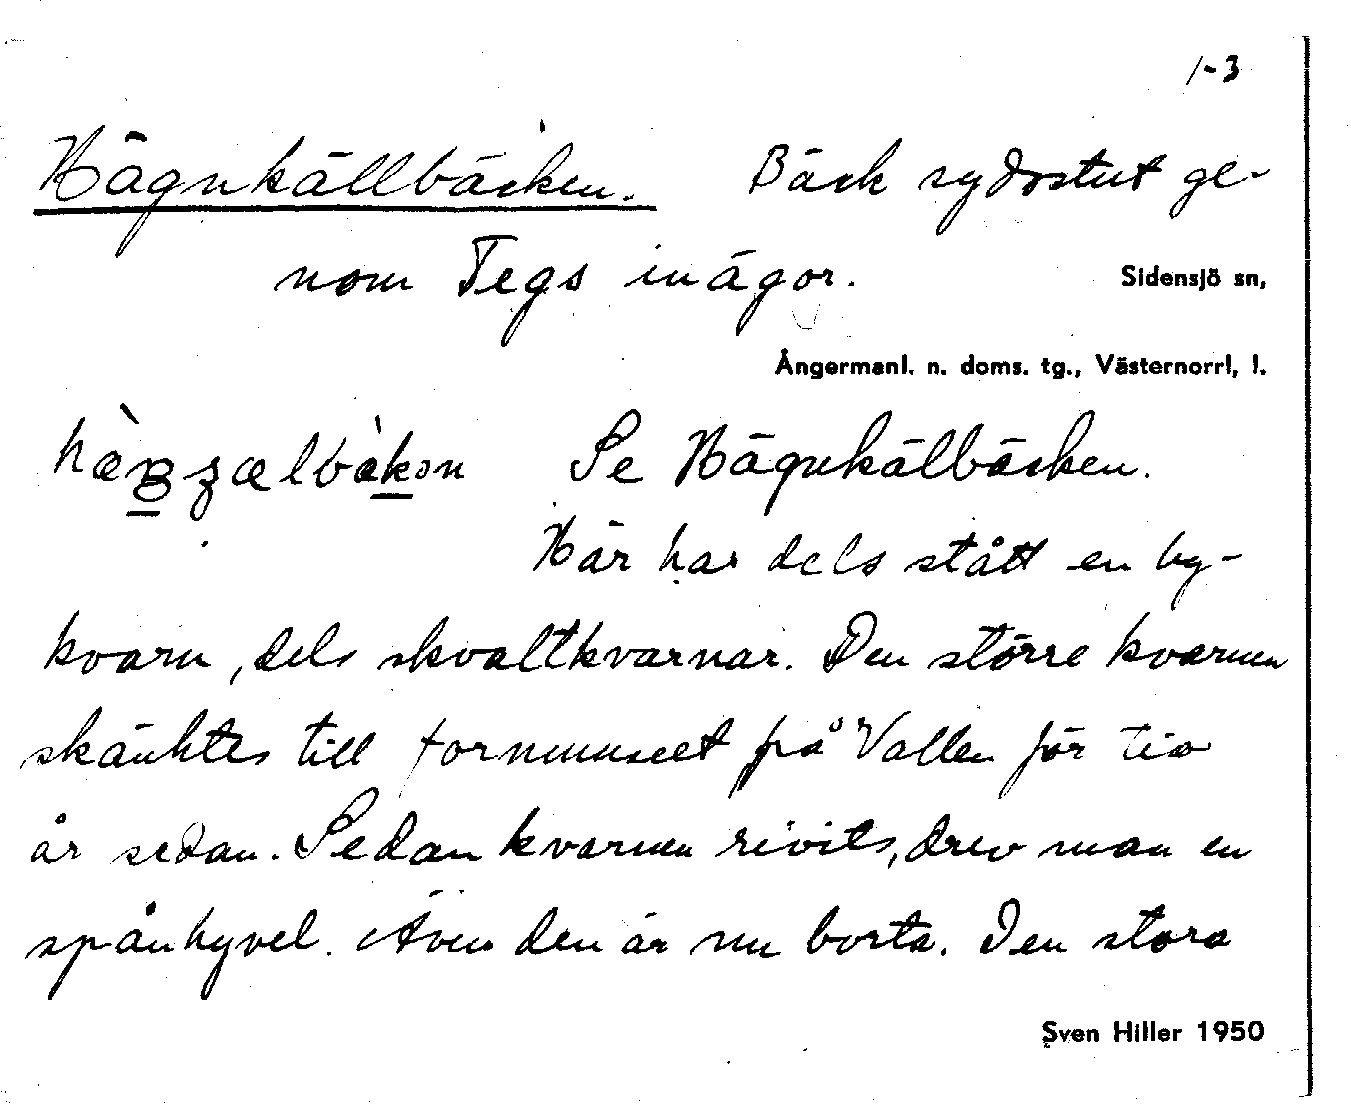 1-3
Hägnkällbäcken. Bäck sydostut ge-
nom Tegs inägor. Sidensjö sn,
Ångermanl. n. doms. tg., Västernorrl. l.
Se Hägnkälbäcken.
Här har dels stått en by-
kvarn, dels skvaltkvarnar. Den större kvarnen
skänktes till fornmuseet på Vallen för tio
år sedan. Sedan kvarnen rivits, drev man en
spånhyvel. Även den är nu borta. Den stora
Sven Hiller 1950